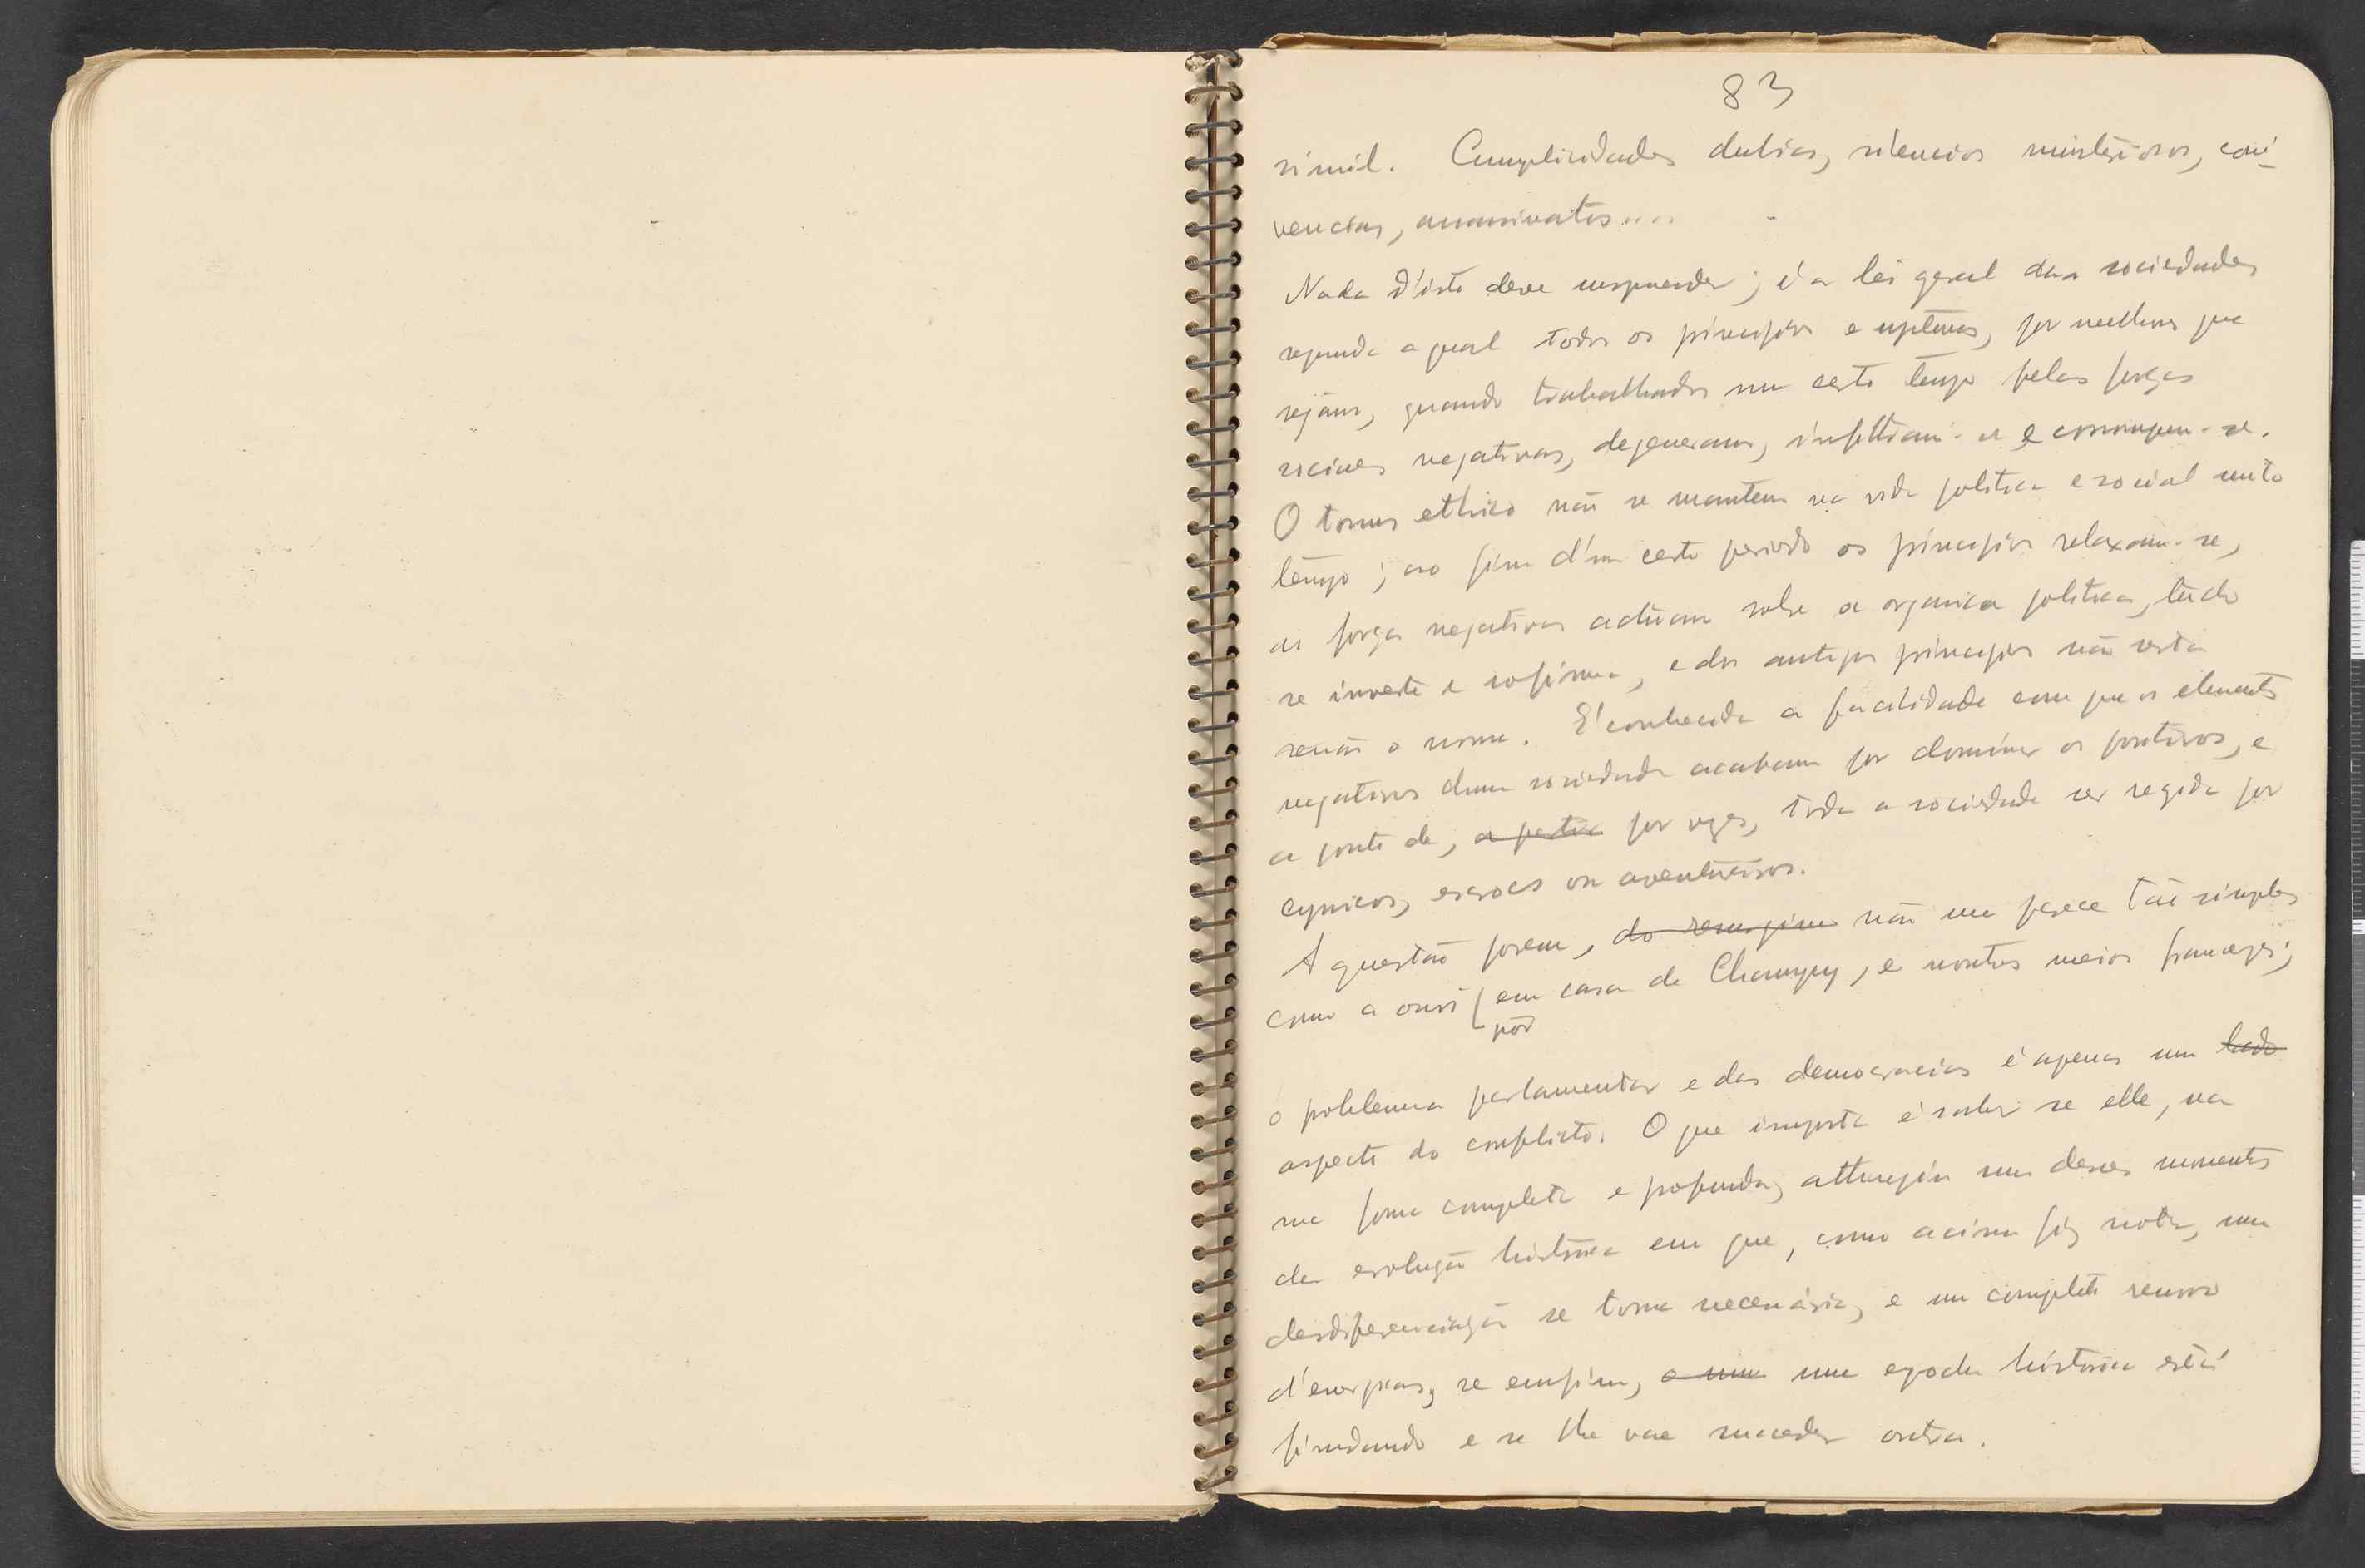 83
símil. Cumplicidades dubias, silencios misteriosos, coni-
vencias, assassinatos....
Nada d'isto deve surprender; é a lei geral das sociedades
segundo a qual todos os principios e systemas, por melhores que
sejam, quando trabalhados um certo tempo pelas forças
sociaes negativas, degeneram, infiltram-se e corrompem-se.
O tonus ethico não se mantem na vida politica e social muito
tempo; ao fim d'um certo periodo os principios relaxam-se,
as forças negativas actuam sobre a organica politica, tudo
se inverte e sofisma, e dos antigos principios não resta
senão o nome. É conhecida a facilidade com que os elementos
negativos duma sociedade acabam por dominar os positivos, e
a ponto de, por vezes, toda a sociedade ser regida por
cynicos, escrocs ou aventureiros.
A questão porem, não me parece tão simples
como a ouvi pôr em casa de Champy, e noutros meios francezes;
o problema parlamentar e das democracias é apenas um lado
aspecto do conflicto. O que importa é saber se elle, na
sua forma completa e profunda, attingiu um desses momentos
da evolução historica em que, como acima fiz notar, uma
desdiferenciação se torna necessária, e um completo renovo
d'energias, se emfim, e uma uma epocha historica está
findando e se lhe vae succeder outra.